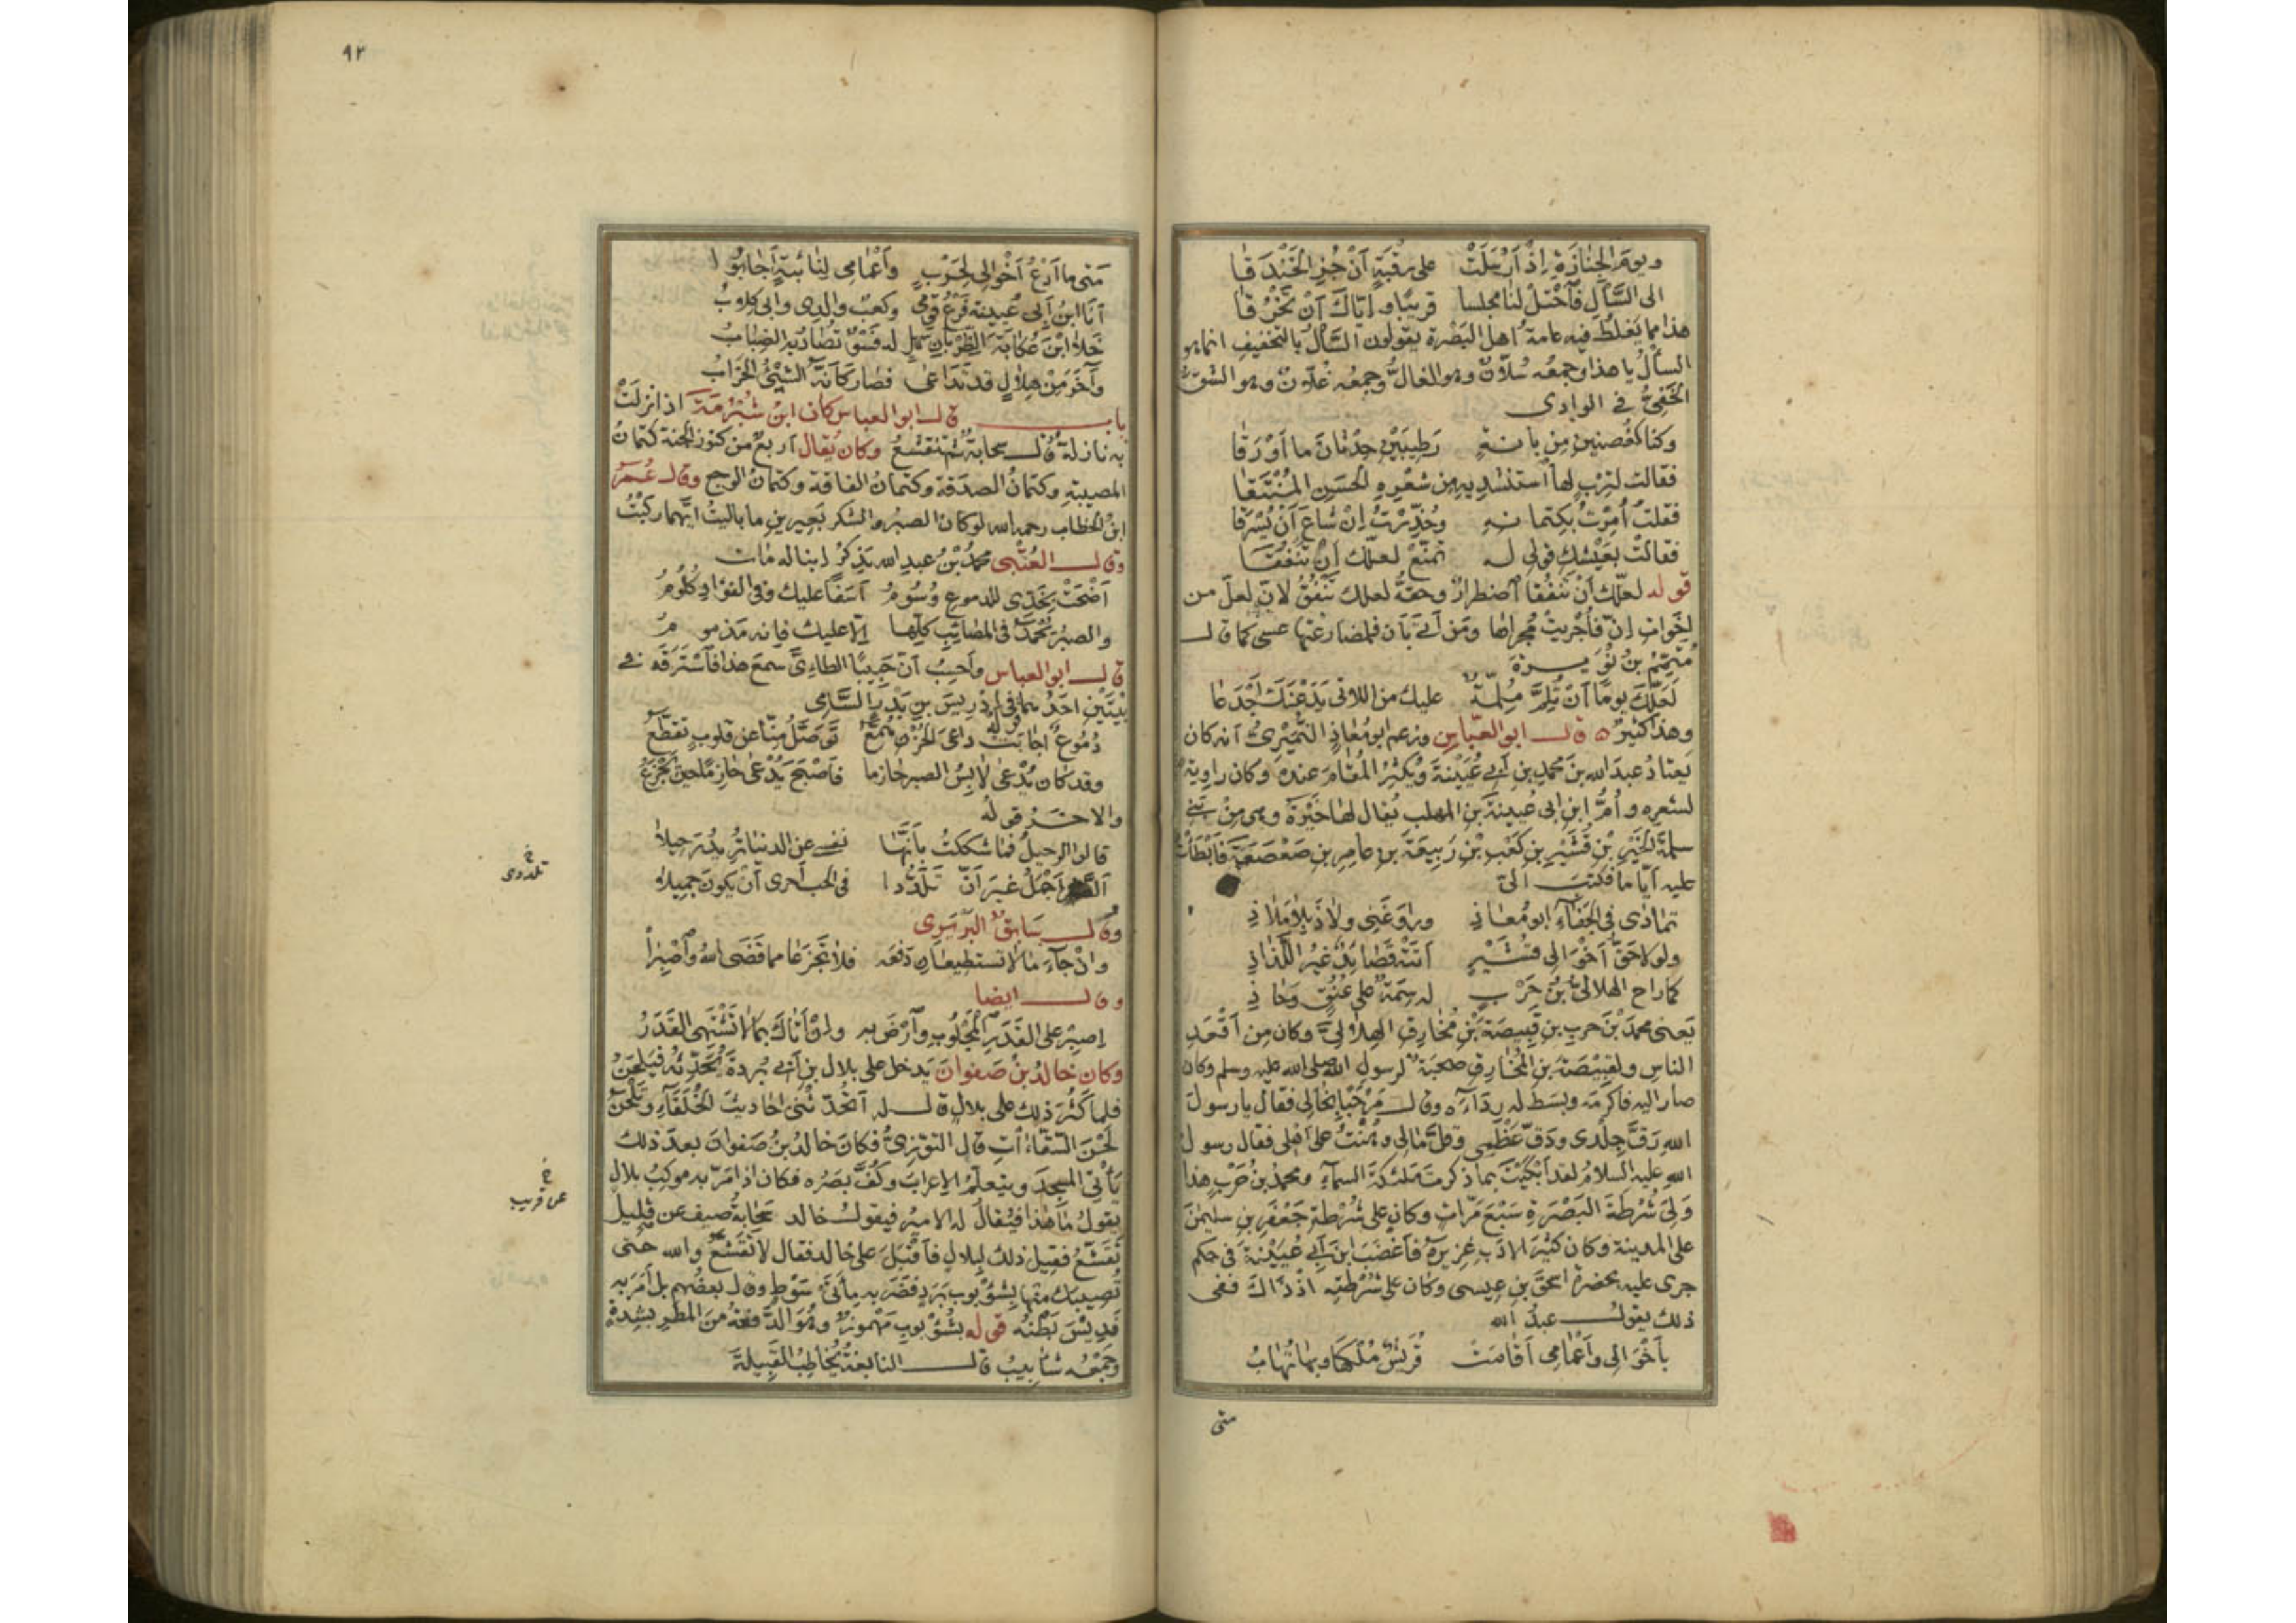 ويومَ الجنازَةِ إذْ أرْسَلَتْ على رقبَةٍ أنْ جُزِ الخَنْدَقا
الى السَّأْلِ فَاخْتَلْ لنا مجلسا قريبًا وايّاكَ أنْ تَخْرُقا
هذا مما يَغلَطُ فيه عامةُ اهل البَصْرة يقولون السَّالُ بالتخفيف انما هو
السالُّ يا هذا وجمعُه سُلّانٌ وهو الغالُّ وجمعُه غُلّانٌ وهو الشقُّ
الخَفِيُّ في الوادى
وكنا كغُصنين من بانةٍ رَطِيبَيْنِ حِدْثانَ ما أوْرَقا
فقالت لتِرْبٍ لها استنشديه من شعْرِهِ الحَسَنِ المُنْتَقا
فقلتُ أُمِرْتُ بكِتمانهِ وحُذِّرْتُ إنْ شاعَ أنْ يُسْرَقا
فقالتْ بعَيْشِك قولى له تمتّعْ لعلّك أنْ تنفُقا
قوله لعلّك أنْ تنفُقا اضطرارٌ وحقّهُ لعلك تنفُقُ لانّ لعلّ من
اخوات إنّ فأُجريتْ مُجراها ومَن أتى بأن فلمضارعتها عسى كما قال
مُتمِّمُ بنُ نُوَيرة
لعلّك يومًا أنْ تُلِمَّ مُلِمّةٌ عليك من اللاتى يَدَعْنَكَ أجْدَعا
وهذا كثيرٌ ه قال ابو العبّاس وزعم ابو مُعاذٍ النُّمَيْرىُّ أنه كان
يعتادُ عبدَ الله بنَ محمد بنِ أبى عُيَيْنةَ ويُكثِرُ المُقامَ عنده وكان راويةً
لشعره وأُمُّ ابنِ ابى عيينةَ بنِ المهلب يُقال لها خَيْرَةُ وهى من بنى
سلمةَ الخَيْرِ بْنِ قُشَيْرِ بنِ كعْبِ بْنِ رَبيعةَ بنِ عامِرِ بنِ صَعْصَعَةَ فأبْطأْتُ
عليه أيّامًا فكتبَ الىّ
تمادَى فى الجَفاءِ ابو مُعاذِ وراوَغَنى ولاذَ بلا مَلاذِ
ولولا حَقُّ أخْوالى قُشَيْرٍ أتَتْهُ قصائدٌ غيرُ اللَّذاذِ
كما راح الهلالىُّ بْنُ حَرْبٍ له سِمَةٌ على عُنُقٍ وحاذِ
يَعنى محمدَ بْنَ حربِ بنِ قَبِيصَةَ بْنِ مُخارِقٍ الهِلالىَّ وكان مِن أقْعَدِ
الناس ولقَبِيصَةَ بنِ المُخارِقِ صحبَةٌ لرسولِ الله صلى الله عليه وسلم وكان
صار اليه فأكرمَه وبسَط له رداءَه وقال مَرْحَبًا بخالى فقال يا رسولَ
اللهِ رَقَّ جِلْدى ودَقَّ عَظْمِى وقَلَّ مالى وهُنْتُ على أهْلى فقال رسولُ
اللهِ عليه السلامُ لقد أبْكَيْتَ بما ذكرتَ ملئكةَ السماءِ ومحمدُ بنُ حَرْبٍ هذا
وَلِىَ شُرْطةَ البَصْرةِ سَبْعَ مَرّاتٍ وكان على شُرْطةِ جَعْفَرِ بنِ سليمٰنَ
على المدينة وكان كثيرَ الادَبِ غزيرَهُ فأغضَبَ ابنَ أبى عُيَيْنةَ فى حكم
جرى عليه بحضرةِ اسحٰقَ بنِ عيسى وكان على شُرْطتِه إذْ ذاكَ ففى
ذلك يقولُ عبدُ الله
بأخْوالى وأعْمامى أقامَتْ قُرَيْشٌ مُلْكَها وبها تُهابُ
متى
٩٢
متى ما أدْعُ أخْوالى لحَرْبٍ وأعْمامى لنائبةٍ أجابوا
أنا ابنُ أبى عُيينةَ فَرْعُ قومى وكعبٌ والدى وابى كلابُ
خلا ابْنَ عُكابةَ الظَّرِبانِ سَهْلٍ له فَسْوٌ تُصادُ به الضِّبابُ
وآخَرَ مِنْ هلالٍ قد تداعى فصار كأنّه الشَّيْءُ الخَرابُ
باب قال ابو العباس كان ابنُ شُبْرُمَةَ اذا نزلَتْ
به نازلةٌ قال سحابةٌ ثم تقشّعُ وكان يُقال أربعٌ من كنوز الجنة كتمانُ
المصيبةِ وكتمانُ الصدَقة وكتمانُ الفاقة وكتمانُ الوجع وقال عُمَرُ
ابنُ الخطاب رحمه الله لو كان الصبرُ والشكر بَعِيرينِ ما باليتُ ايَّهما ركبْتُ
وقال العُتْبى محمدُ بْنُ عبدِ الله يَذكرُ ابنا له مات
أضْحَتْ بِخَدِّى للدموعِ رُسُومُ أسَفًا عليك وفى الفؤادِ كُلُومُ
والصبرُ يُحْمَدُ فى المصائبِ كلِّها إلّا عليك فإنه مذمومُ
قال ابو العباس وأحسِبُ أنّ حَبيبًا الطائىَّ سمعَ هذا فاسْتَرَقَه فى
بيتَيْنِ احدُهما فى إدْريسَ بنِ بَدْرٍ السَّامى قوله
دُموعٌ أجابَتْ داعىَ الحُزْنِ هُمَّعُ تَوَصَّلُ مِنّا عن قلوبٍ تقطّعُ
وقد كان يُدْعى لابسُ الصبرِ حازما فأصْبَحَ يُدْعى حازِمًا حين يَجْزَعُ
والاخر قوله
قالوا الرحيلُ فما شككتُ بأنّها نفسى عن الدنيا تُريدُ رَحيلا
الصبرُ أجْمَلُ غيرَ أنّ تلدُّدا فى الحبّ أحرى أنْ يكونَ جميلا
خ
تلددى
وقال سَابقٌ البَرْبَرِى
وإنْ جاءَ ما لا تستطيعانِ دَفعَه فلا تَجْزَعا مما قَضَى اللهُ واصْبِرا
وقال ايضا
إصبِرْ على القَدَرِ المَجْلُوبِ وارْضَ به وإنْ أتاكَ بما لا تَشْتَهى القَدَرُ
وكان خالدُ بْنُ صَفوانَ يَدخل على بلالِ بنِ أبى بُرْدةَ يُحَدِّثُه فيَلْحَنُ
فلما كَثُرَ ذلك على بلالٍ قال له أتُحَدِّثُنى أحاديثَ الخُلَفاءِ وتَلْحَنُ
لَحْنَ السَّقّاءاتِ قال التوّزىُّ فكان خالدُ بنُ صَفوانَ بعدَ ذلك
يأتى المسجدَ ويتعلّمُ الاعرابَ وكُفَّ بصَرُه فكان اذا مَرّ به موكبُ بلالٍ
يقولُ ما هذا فيُقالُ له الاميرُ فيقولُ خالد سَحابةُ صيف عن قليل
خ
عن قريب
تَقَشّعُ فقيل ذلك لبلالٍ فأقبَلَ على خالد فقال لا تَقَشَّعُ والله حتى
تُصيبَك منها بشُؤبوبِ بَرَدٍ فضَرَبه مِائَتَىْ سَوْطٍ وقال بعضُهم بل أمَرَ به
فدِيسَ بَطْنُه قوله بشُؤْبوبٍ مَهْموزٌ وهُوَ الدَّفعةُ مِنَ المطرِ بشدةٍ
وجَمْعُه شآبيبُ قال النابغةُ يُخاطِبُ القَبيلةَ